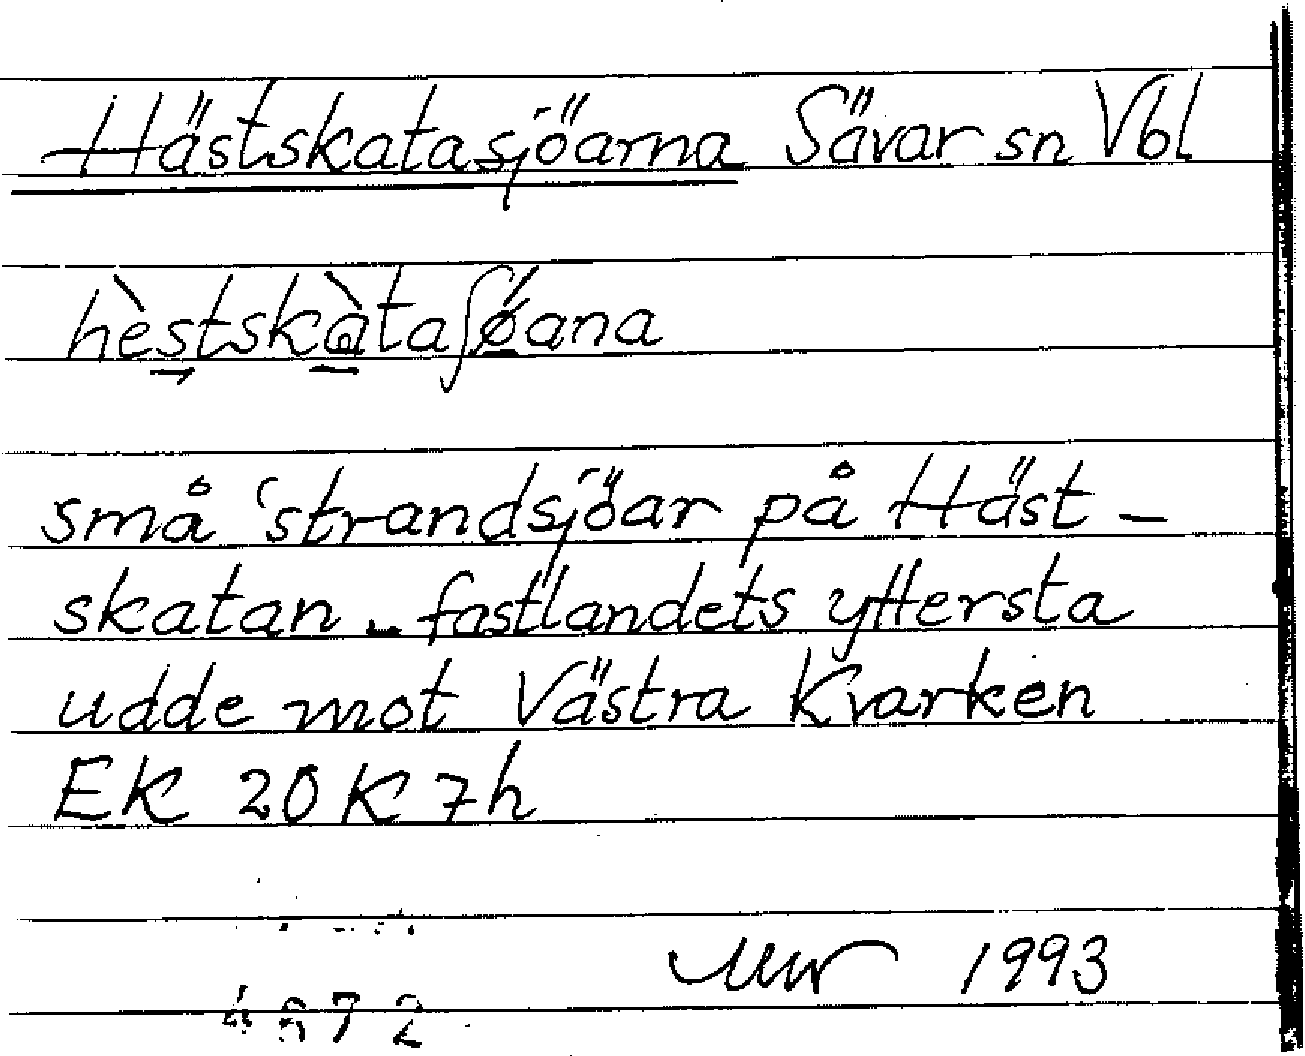 Hästskatasjöarna Sävar sn Vbl
hèstskàtaʃǿana
små strandsjöar på Häst-
skatan - fastlandets yttersta
udde mot Västra Kvarken
EK 20K 7h
1993